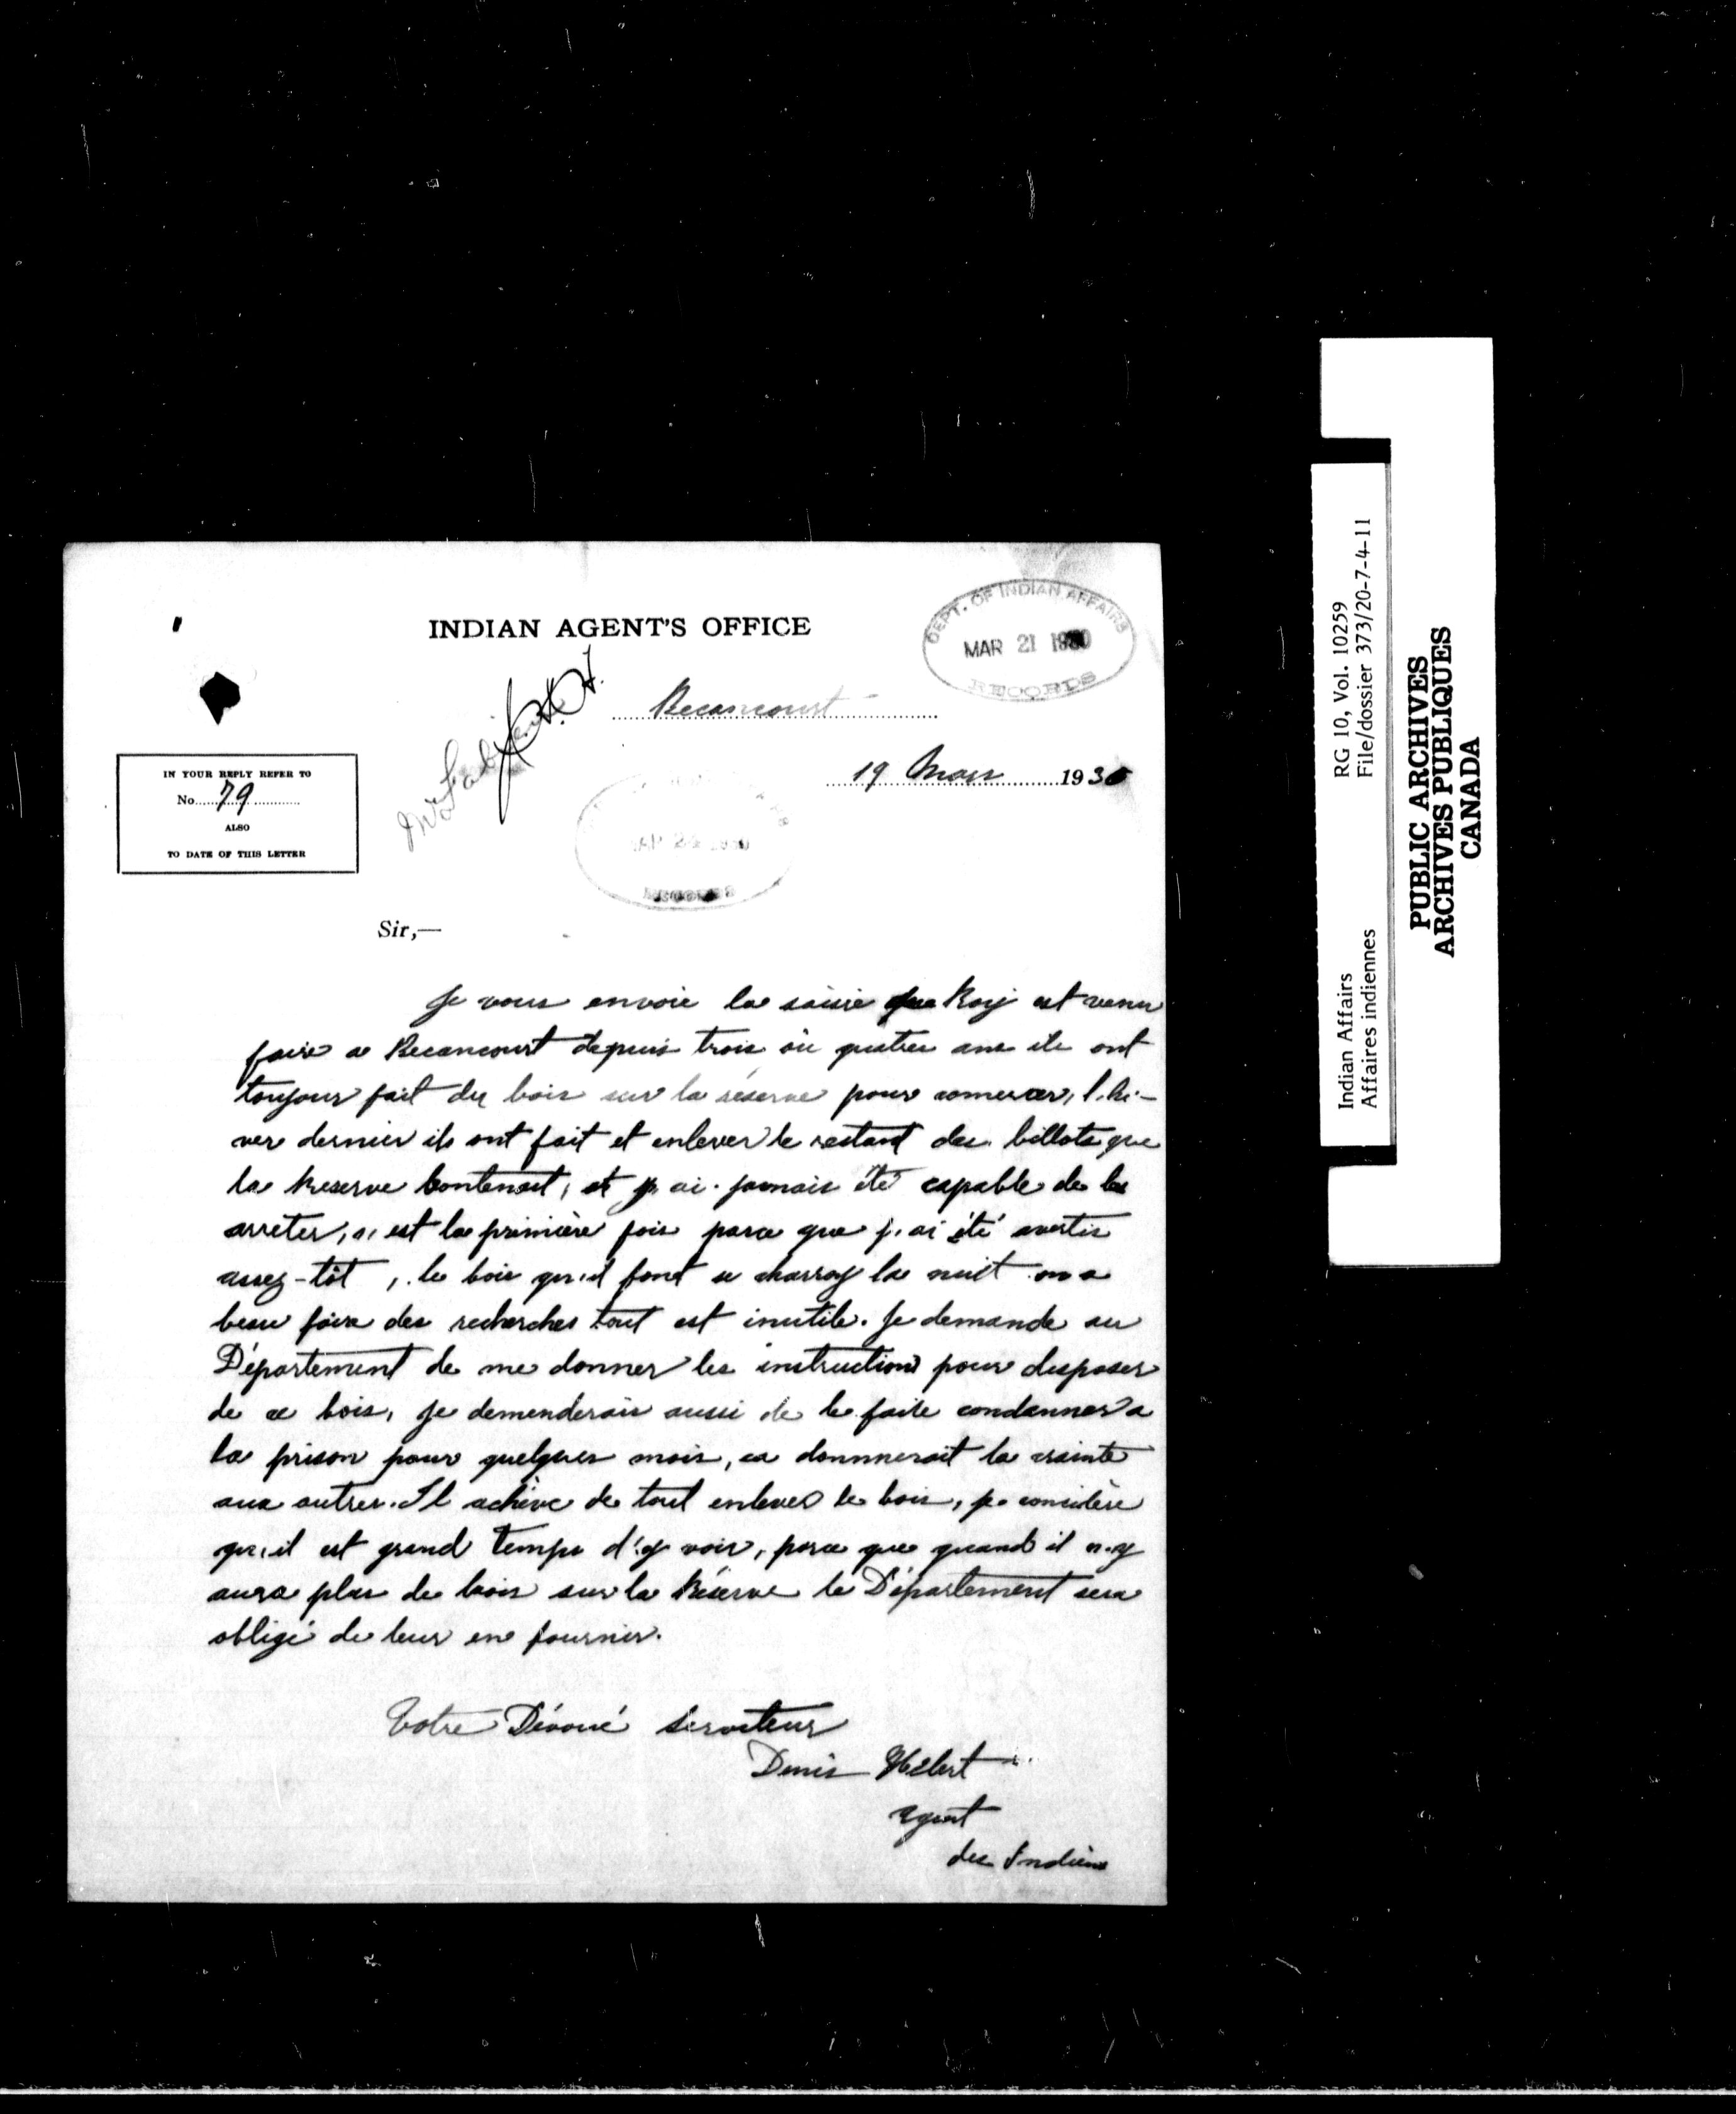 INDIAN AGENT'S OFFICE
DEPT. OF INDIAN AFFAIRS
MAR 21 1930
RECORDS
Becancourt
19 Mars 1930
IN YOUR REPLY REFER TO
No. 79
ALSO
TO DATE OF THIS LETTER
RECORDS
Sir,—
Je vous envoie la saisie que Roy est venu
faire a Becancourt depuis trois ou quatre ans ils ont
toujour fait du bois sur la réserve pour comercer, l,hi-
ver dernier ils ont fait et enlever le restant des billots que
la Reserve Contenait, et j, ai jamais été capable de les
arreter, c, est la primière fois parce que j, ai été avertis
assez-tôt, le bois qu,il font se charroy la nuit on a
beau faire des recherches tout est inutile. Je demande au
Département de me donner les instructions pour disposer
de ce bois, je demenderais aussi de le faire condanner a
la prison pour quelques mois, ca donnnerait la crainte
aux autres. Il achève de tout enlever le bois, je considère
qu,il est grand temps d'y voir, parce que quand il n,y
aura plus de bois sur la Réserve le Département sera
obligé de leur en fournir.
Votre Dévoué Serviteur
Denis Hébert
Agent
des Indiens
Indian Affairs RG 10, Vol. 10259
Affaires indiennes File/dossier 373/20-7-4-11
PUBLIC ARCHIVES
ARCHIVES PUBLIQUES
CANADA